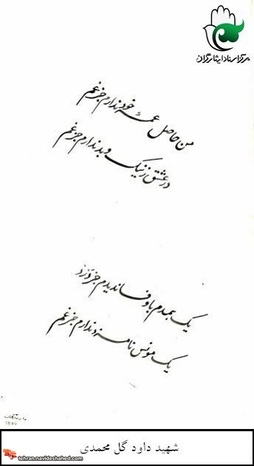 مرکز اسناد ایثارگران
من حاصل عمر خود ندارم جز غم
در عشق ز نیک و بد ندارم جز غم
یک همدم باوفا ندیدم جز درد
یک مونس نامزد ندارم جز غم
tehran.navideshahed.com
شهید داود گل محمدی